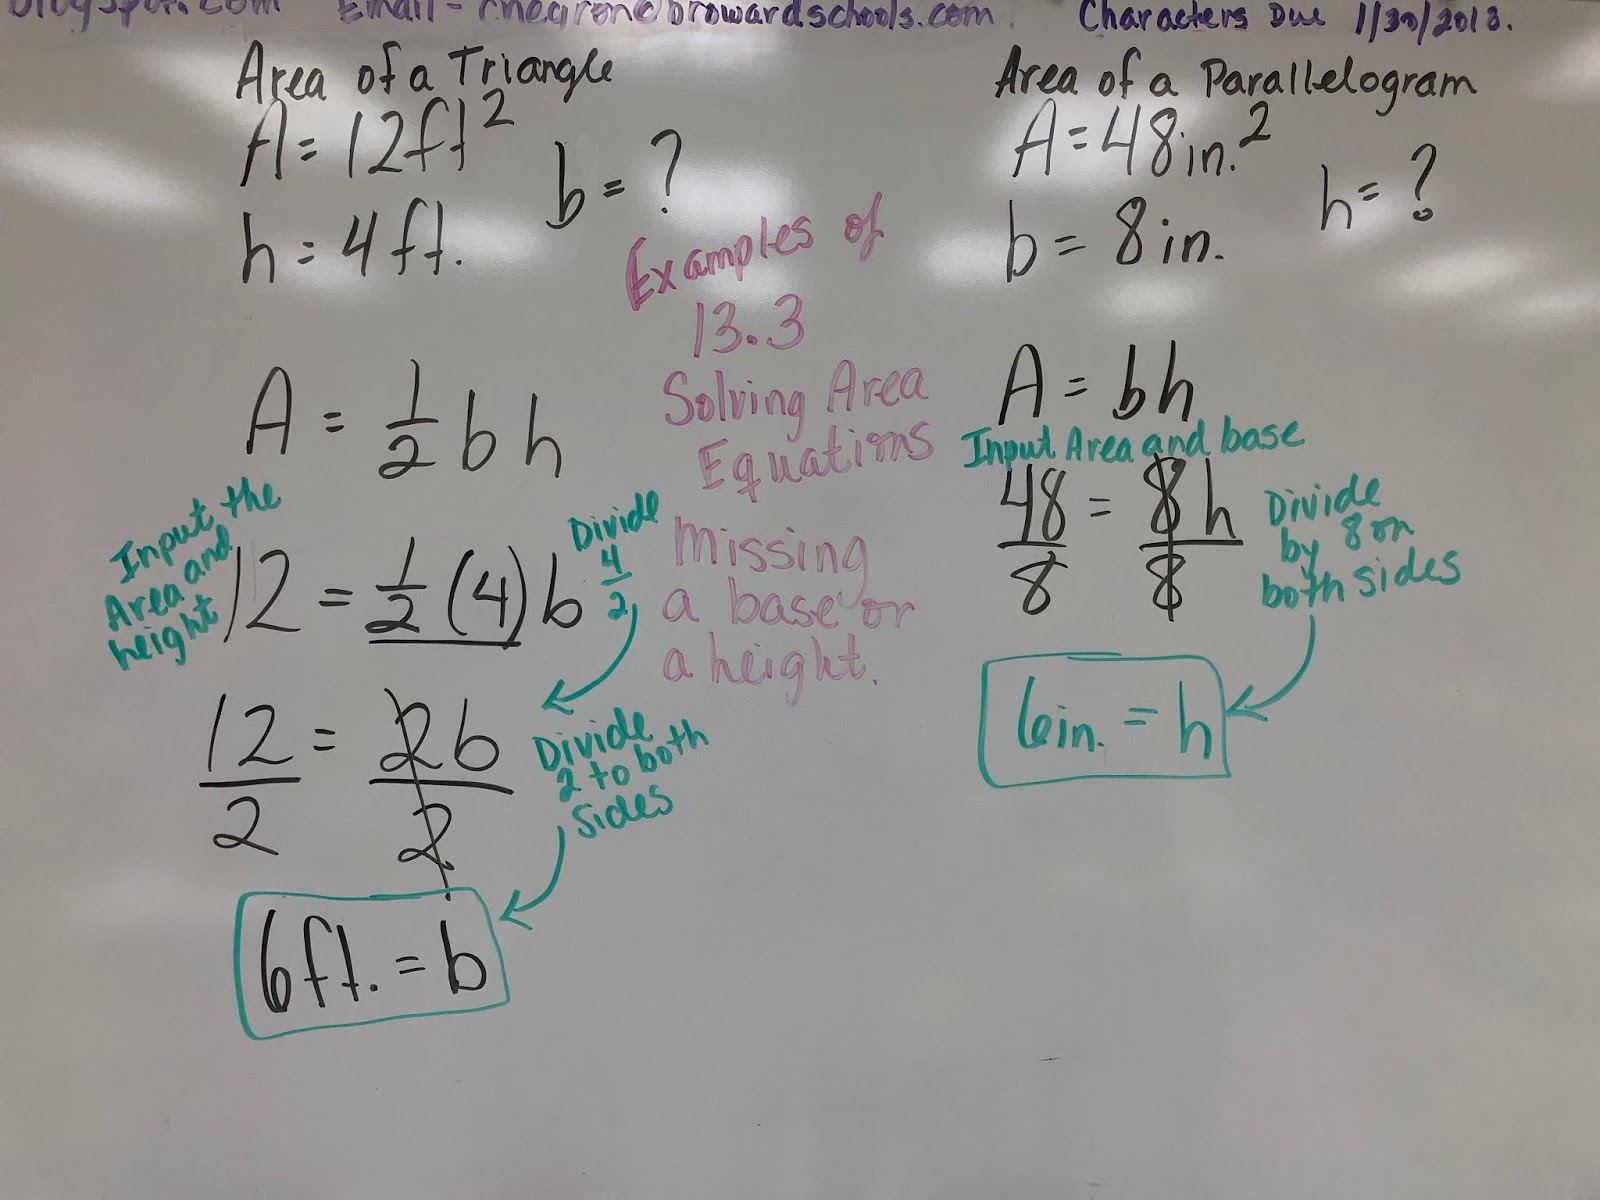 Email - browardschools.com Characters Due 1/30/2018.
Area of a Triangle
A = 12ft²
b = ?
h = 4ft.
A = 1/2 b h
Input the
Area and
height
12 = 1/2 (4) b
Divide
4/2
12/2 = 2b/2
Divide
2 to both
sides
6ft. = b
Examples of
13.3
Solving Area
Equations
missing
a base or
a height.
Area of a Parallelogram
A = 48in.²
h = ?
b = 8in.
A = bh
Input Area and base
48/8 = 8h/8
Divide
by 8 on
both sides
6in. = h